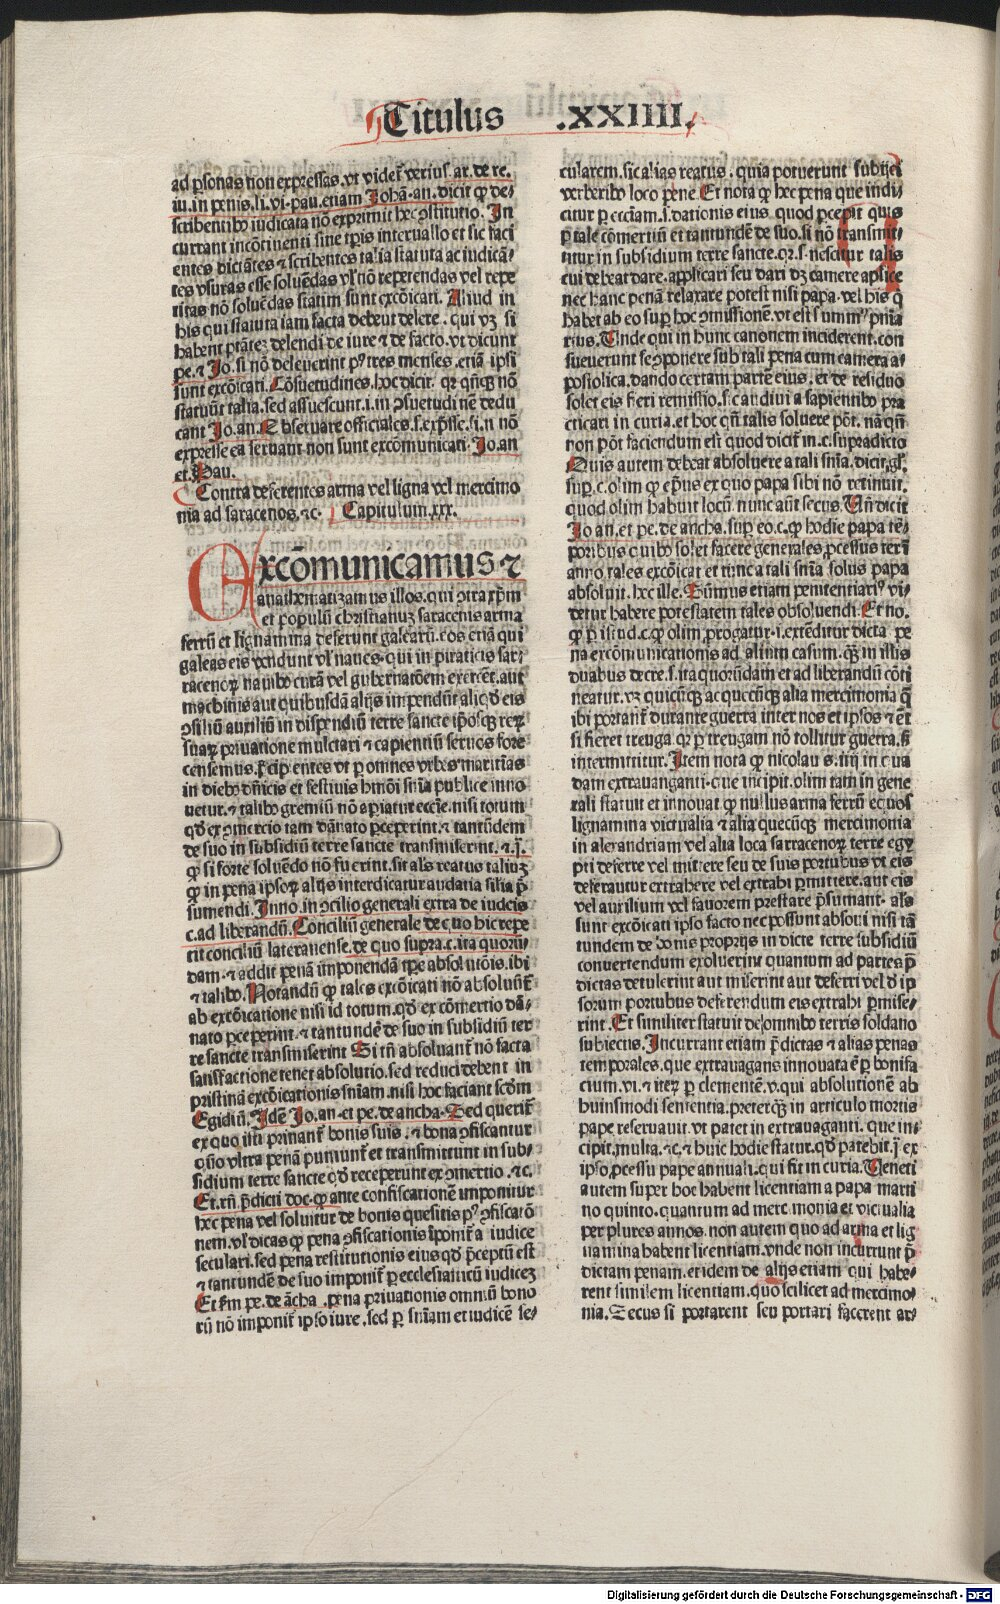 Titulus .XXIIII.
ad ꝑsonas non expressas. vt videt᷑ verius. ar. de re.
iu. in penis. li. vi. pau. etiam Johā. an. dicit ꝙ de⸗
scribentibꝰ iudicata nō exprimit hec ꝯstitutio. In
currant incōtinenti sine tꝑis interuallo et sic faci
entes dictātes ⁊ scribentes talia statuta ac iudicā⸗
tes vsuras esse soluēdas vl̓ nō repetendas vel repe
titas nō soluēdas statim sunt excōicati. Aliud in
his qui statuta iam facta debent delere. qui vꝫ si
habent ptātez delendi de iure ⁊ de facto. vt dicunt
pe. ⁊ Jo. si nō deleuerint pꝰ tres menses. etiā ipsi
sunt excōicati. Cōsuetudines. hoc dicit. qꝛ qn̄qꝫ nō
statuūt talia. sed assuescunt. i. in ꝯsuetudinē dedu
cant Jo. an. Obseruare officiales. s. exp̄sse. si. n nō
expresse ea seruant non sunt excōmunicati. Jo. an
et. Pau.
Contra deferentes arma vel ligna vel mercimo
nia ad saracenos. ⁊c. Capitulum. xxx.
Excōmunicamus ⁊
anathematizamus illos. qui ꝯtra xp̄m
et populū christianuꝫ saracenis arma
ferrū et lignamina deferunt galearū. eos etiā qui
galeas eis vendunt vl̓ naues. qui in piraticis sar⸗
racenoꝝ nauibꝰ curā vel gubernatōem exercēt. aut
machinis aut quibusdā alijs impendūt aliqd̓ eis
ꝯsiliū auxiliū in dispendiū terre sancte ip̄osqꝫ reꝝ
suaꝝ priuatione mulctari ⁊ capientiū seruos fore
censemus. p̄cipientes vt ꝑ omnes vrbes maritias
in diebꝰ dn̄icis et festiuis hmōi sn̄ia publice inno
uetur. ⁊ talibꝰ gremiū nō aꝑiatur eccie. nisi totum
qd̓ ex ꝯmercio tam dānato ꝑceperint. ⁊ tantūdem
de suo in subsidiū terre sancte transmiserint. ⁊. j̄.
ꝙ si forte soluēdo nō fuerint. sit als̓ reatus taliuꝫ
ꝙ in pena ipsoꝝ alijs interdicatur audatia silia p̄
sumendi. Inno. in ꝯcilio generali extra de iudeis
c. ad liberandū. Conciliū generale de quo hic repe
tit conciliū lateranense. de quo supra. c. ita quorū⸗
dam. ⁊ addit penā imponendā tꝑe absolutōis. ibi
⁊ talibꝰ. Notandū ꝙ tales excōicati nō absoluūt᷑
ab excōicatione nisi id totum. qd̓ ex cōmertio dā⸗
nato ꝑceperint. ⁊ tantundē de suo in subsidiū ter
re sancte transmiserint Si tn̄ absoluant᷑ nō facta
satisfactione tenet absolutio. sed reduci debent in
pristinā excōicationis sn̄iam. nisi hoc faciant scd̓m
Egidiū. Idē Jo. an. et pe. de ancha. Sed querit᷑
ex quo isti priuant᷑ bonis suis. ⁊ bona ꝯfiscantur
qūo vltra penā puniunt᷑ et transmittunt in sub⸗
sidium terre sancte qd̓ receperunt ex ꝯmertio. ⁊c.
Et. rn̄. p̄dicti doc. ꝙ ante confiscationē imponitur
hec pena vel soluitur de bonis quesitis pꝰ ꝯfiscatō
nem. vl̓ dicas ꝙ pena ꝯfiscationis īponit᷑ a iudice
seculari. sed pena restitutionis eius qd̓ ꝑceptū est
⁊ tantundē de suo imponit᷑ ꝑ ecclesiasticū iudiceꝫ
Et fm̄ pe. de ācha. pena priuationis omniū bono
rū nō imponit᷑ ipso iure. sed ꝑ sn̄iam et iudicē se⸗
cularem. sic alias reatus. quia potuerunt subtjci
verberibꝰ loco pene. Et nota ꝙ hec pena que indi
citur ꝑ ecciam. s. dationis eius. quod ꝑcepit quis
ꝑ tale cōmertiū et tantundē de suo. si nō transmit⸗
titur in subsidium terre sancte. qꝛ. s. nescitur talis
cui debeat dare. applicari seu dari dꝫ camere aplice
nec hanc penā relaxare potest nisi papa. vel his q̄
habēt ab eo suꝑ hoc ꝯmissionē. vt est summꝰ pn̄ia
rius. Unde qui in hunc canonem inciderent. con
sueuerunt se ꝯponere sub tali pena cum camera a⸗
postolica. dando certam partē eius. et de residuo
solet eis fieri remissio. sic audiui a sapientibꝰ pra
cticari in curia. et hoc qn̄ talis soluere pōt. nā qn̄
non pōt faciendum est quod dicit᷑ in. c. supradicto
Quis autem debeat absoluere a tali sn̄ia. dicit. gl̓.
suꝑ. c. olim ꝙ ep̄us ex quo papa sibi nō retinuit.
quod olim habuit locū. nunc aūt secus. Un̄ dicit
Jo an. et pe. de ancha. suꝑ eo. c. ꝙ hodie papa tē⸗
poribus quibꝰ solet facere generales ꝓcessus ter ī
anno tales excōicat et tunc a tali sn̄ia solus papa
absoluit. hec ille. Summus etiam penitentiariꝰ vi
detur habere potestatem tales absoluendi. Et no.
ꝙ ꝑ istud. c. ꝙ olim ꝓrogatur. i. extēditur dicta pe
na excōmunicationis ad alium casum. qꝫ in illis
duabus decre. s. ita quorūdam et ad liberandū cōti
neatur. vꝫ quicūqꝫ ac quecūqꝫ alia mercimonia q̄
ibi portant᷑ durante guerra inter nos et ipsos ⁊ et
si fieret treuga. qꝛ ꝑ treugam nō tollitur guerra. sꝫ
intermittitur. Item nota ꝙ nicolaus. iiij in qua
dam extrauaganti. que incipit. olim tam in gene
rali statuit et innouat ꝙ nullus arma ferrū equos
lignamina victualia ⁊ alia quecūqꝫ mercimonia
in alexandriam vel alia loca sarracenoꝝ terre egy
pti deferre vel mittere seu de suis portubus vt eis
deferantur extrahere vel extrahi ꝑmittere. aut eis
vel auxilium vel fauorem prestare p̄sumant. als̓
sunt excōicati ipso facto nec possunt absolui nisi tā
tundem de bonis proprijs in dicte terre subsidiū
conuertendum exoluerint quantum ad partes p̄
dictas detulerint aut miserint aut deferri vel d̓ ip
sorum portubus deferendum eis extrahi ꝑmise⸗
rint. Et similiter statuit de omnibꝰ terris soldano
subiectis. Incurrant etiam p̄dictas ⁊ alias penas
temporales. que extrauagans innouata ē ꝑ bonifa
cium. vi. ⁊ iteꝝ ꝑ clementē. v. qui absolutionē ab
huiusmodi sententia. preterqꝫ in articulo mortis
pape reseruauit. vt patet in extrauaganti. que in⸗
cipit. multa. ⁊c. ⁊ huic hodie statur. qd̓ patebit. j̄ ex
ipso ꝓcessu pape annuali. qui fit in curia. Veneti
autem super hoc habent licentiam a papa marti
no quinto. quantum ad mercimonia et victualia
per plures annos. non autem quo ad arma et lig
namina habent licentiam. vnde non incurrunt p̄
dictam penam. et idem de alijs etiam qui habe⸗
rent similem licentiam. quo scilicet ad mercimo⸗
nia. Secus si portarent seu portari facerent ar⸗
Digitalisierung gefördert durch die Deutsche Forschungsgemeinschaft - DFG